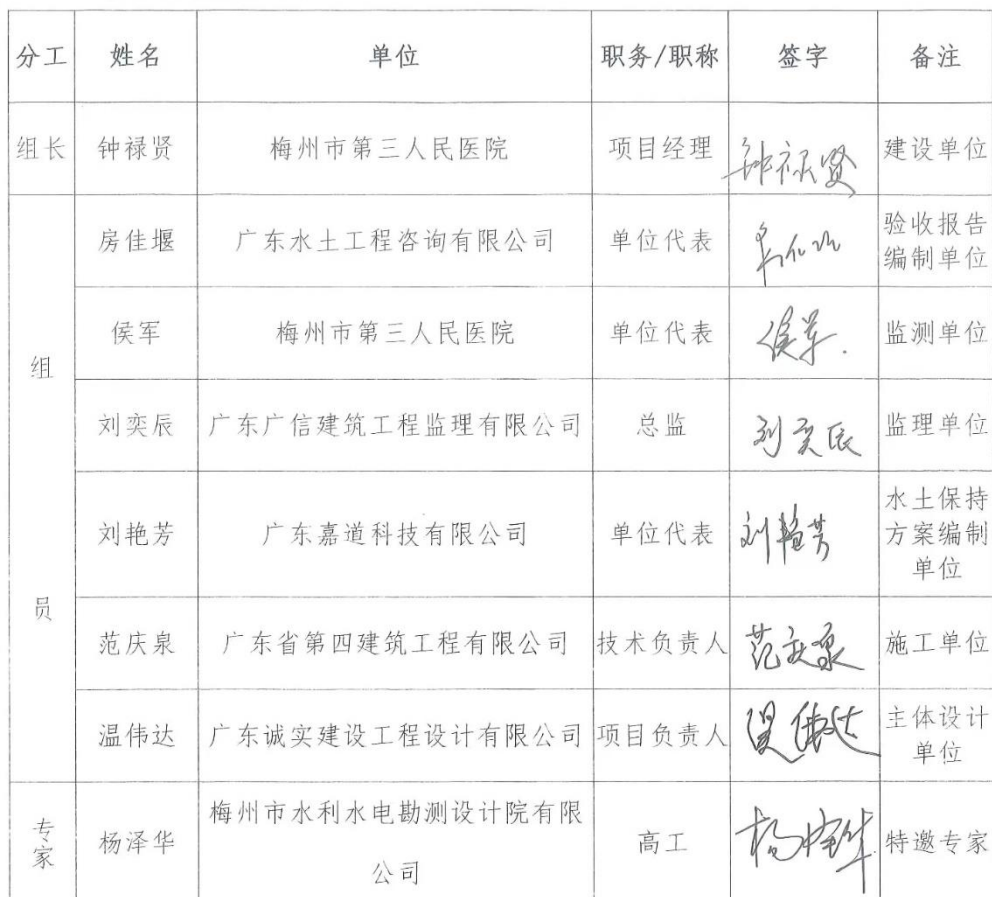 分工 姓名 单位 职务/职称 签字 备注
组长 钟禄贤 梅州市第三人民医院 项目经理 钟禄贤 建设单位
房佳堰 广东水土工程咨询有限公司 单位代表 验收报告
编制单位
侯军 梅州市第三人民医院 单位代表 侯军. 监测单位
组
刘奕辰 广东广信建筑工程监理有限公司 总监 刘奕辰 监理单位
刘艳芳 广东嘉道科技有限公司 单位代表 刘艳芳 水土保持
方案编制
单位
员
范庆泉 广东省第四建筑工程有限公司 技术负责人 范庆泉 施工单位
温伟达 广东诚实建设工程设计有限公司 项目负责人 温伟达 主体设计
单位
专
家 杨泽华 梅州市水利水电勘测设计院有限
公司 高工 杨泽华 特邀专家